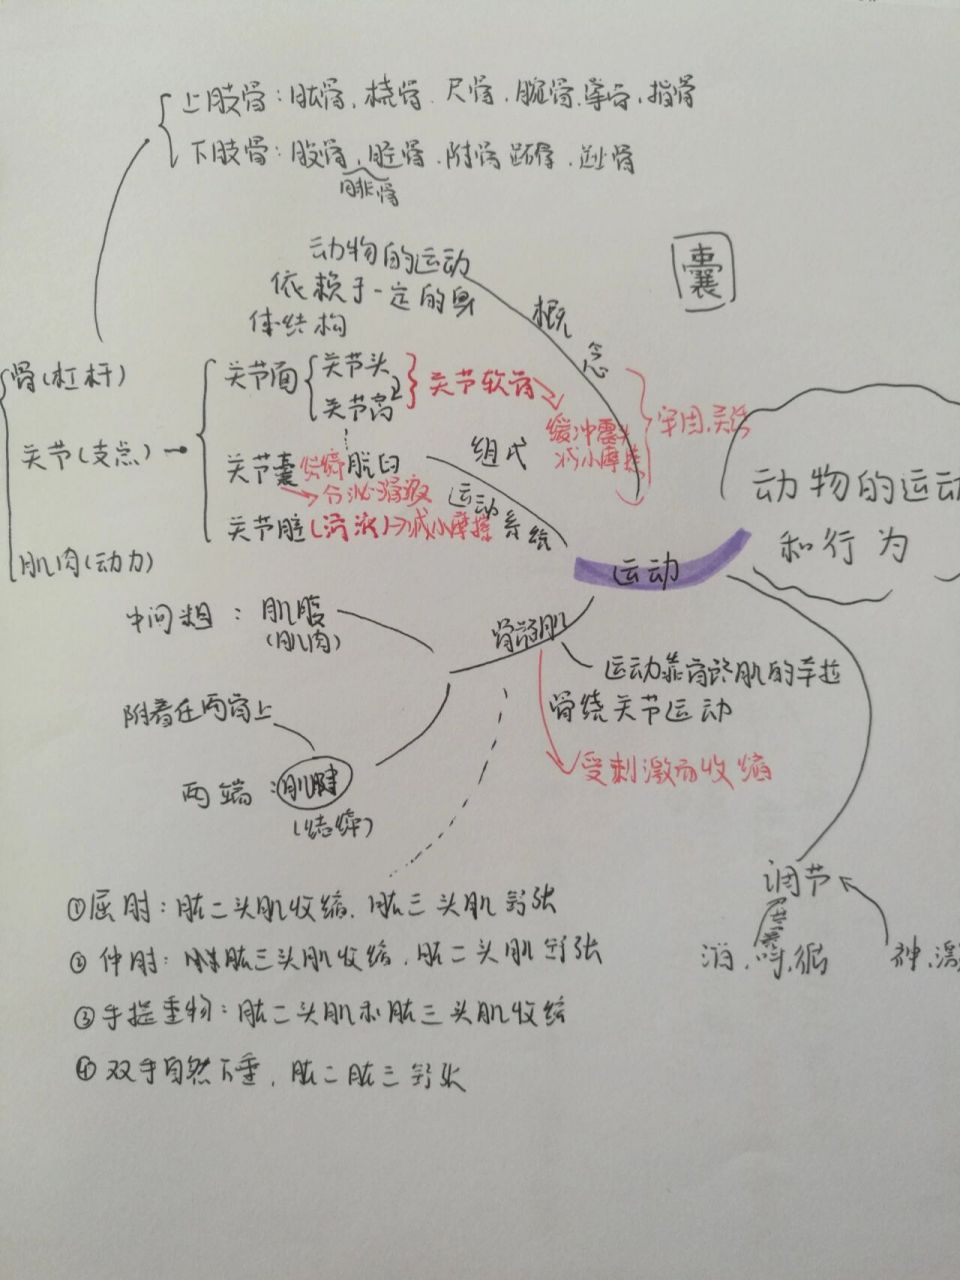 上肢骨：肱骨、桡骨、尺骨、腕骨、掌骨、指骨
下肢骨：股骨、胫骨、附骨、跖骨、趾骨
腓骨
动物的运动
依赖于一定的身
体结构
概念
囊
骨(杠杆)
关节(支点)
肌肉(动力)
关节面
关节头
关节窝
关节软骨
缓冲震动
减小摩擦
牢固、灵活
关节囊
脱臼
分泌滑液
关节腔(滑液)→减小摩擦
组成
运动系统
运动
动物的运动
和行为
骨骼肌
中间粗：肌腹
(肌肉)
附着在两骨上
两端：肌腱
(结缔)
运动靠骨骼肌的牵拉
骨绕关节运动
受刺激而收缩
调节
消、呼、循
神、激
①屈肘：肱二头肌收缩、肱三头肌舒张
②伸肘：肱三头肌收缩、肱二头肌舒张
③手提重物：肱二头肌和肱三头肌收缩
④双手自然下垂、肱二肱三舒张